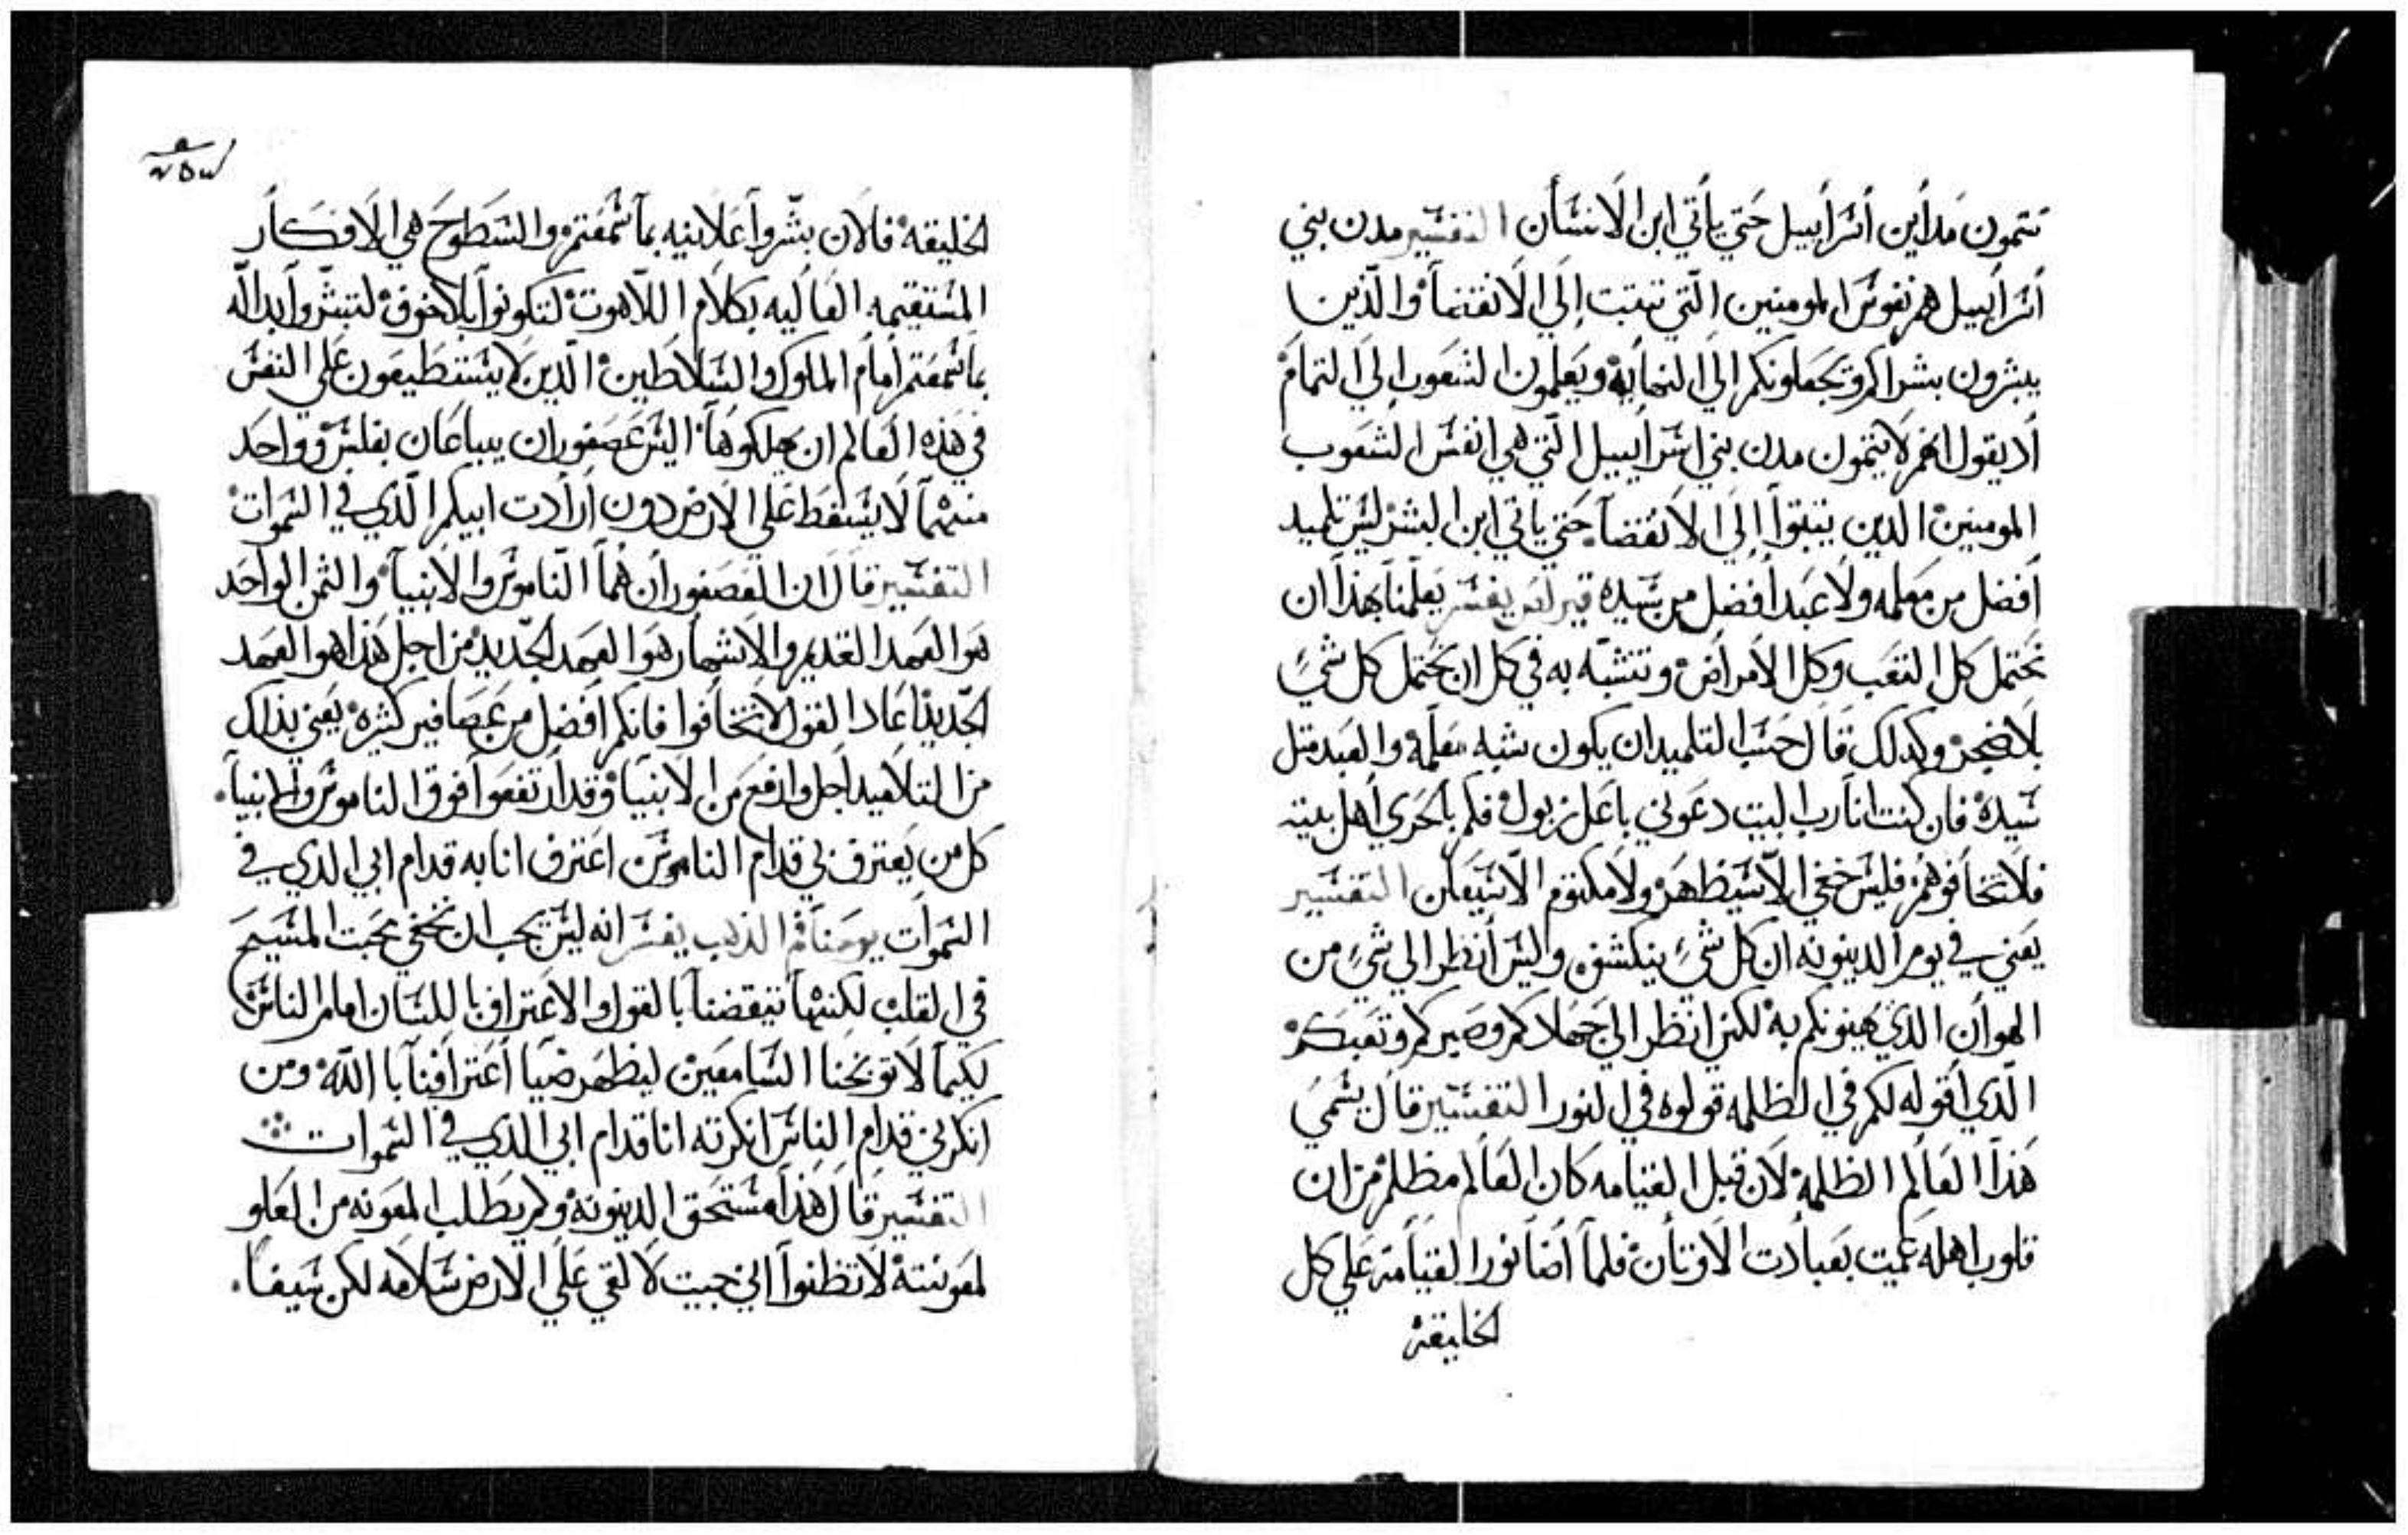 تتمون مدأين أسرأييل حتي يأتي ابن الانسأن التفسير مدن بني
أسرأييل هم نفوس المومنين الّتي تتبت إلي الانقضأ والّذين
يبشرون بشراكم وتجعلونكم الي النهأيه ويعلمون الشعوب الي التمام
أد يقول انهم لا يتمون مدن بني اسرأييل الّتي هي انفس الشعوب
المومنين الدين يتبتوأ إلي الانقضأ حتي ياتي ابن البشر ليس تلميد
أفضل من معلمه ولا عبد أفضل من سيده قيرلس يفسر يعلمنا بهذا ان
نحتمل كل التعب وكل الأمراض ونتشبّه به في كل ان نحتمل كل شيً
بلا ضجر وكدلك قال حسب التلميد ان يكون شبه معلمه والعبد متل
سيده فان كنت انا رب البيت دعوني باعل زبول فكم بالحري أهل بيته
فلا تخافوهم فليس خفي الّا سيظهر ولا مكتوم الّا سيعلن التفسير
يعني في يوم الدينونه ان كل شيً ينكشف وليس أنظر الي شيً من
الهوأن الذي يهينونكم به لكن انظر الي جهادكم وصبركم وتعبكم
الّذي أقوله لكم في الظلمه قولوه في النور التفسير قال يسمي
هذا العالم الظلمه لان قبل القيامه كان العالم مظلم من ان
قلوب اهله عميت بعبادت الاوتأن فلمأ أضأ نور القيامه علي كل
الخليقه
٢٥٧
الخليقه فالان بشّروأ علانيه بمأ سمعتم والسطوح هي الافكأر
المستقيمه العأليه بكلام اللّاهوت لتكونوأ بلا خوف لتبشّروأ بالله
بمأ سمعتم أمام الملوك والسلاطين الّدين لا يستطيعون علي النفس
في هذه العالم ان يهلكوهأ اليس عصفوران يباعان بفلس وواحد
منهمأ لا يسقط علي الارض دون أرأدت ابيكم الّذي في السموات
التفسير قال ان العصفورأن همأ النّاموس والانبيأ والثمن الواحد
هو العهد القديم والاشهار هو العهد الجديد من اجل هذا هو العهد
الجديد اعاد القول لا تخافوا فانكم افضل من عصافير كثيره يعني بذلك
من التلاميد اجل وارفع من الانبيأ وقد ارتفعوأ فوق الناموس والانبيأ
كل من يعترف بي قدام الناموس اعترف انا به قدام ابي الدي في
السموأت يوحنا فم الذهب يفسر انه ليس يجب ان نخفي محبت المسيح
في القلب لكنهأ تتقضنأ بالقول والاعتراف باللسان امام الناس
لكيمأ لا توبخنا السامعين ليظهر ضيأ أعترافنأ باالله ومن
انكرني قدام الناس انكرته انا قدام ابي الدي في السموات
التفسير قال هذا مستحق الدينونه ولم يطلب المعونه من العلو
لمعونته لا تظنوأ اني جيت لالقي علي الارض سلامه لكن سيفأ.